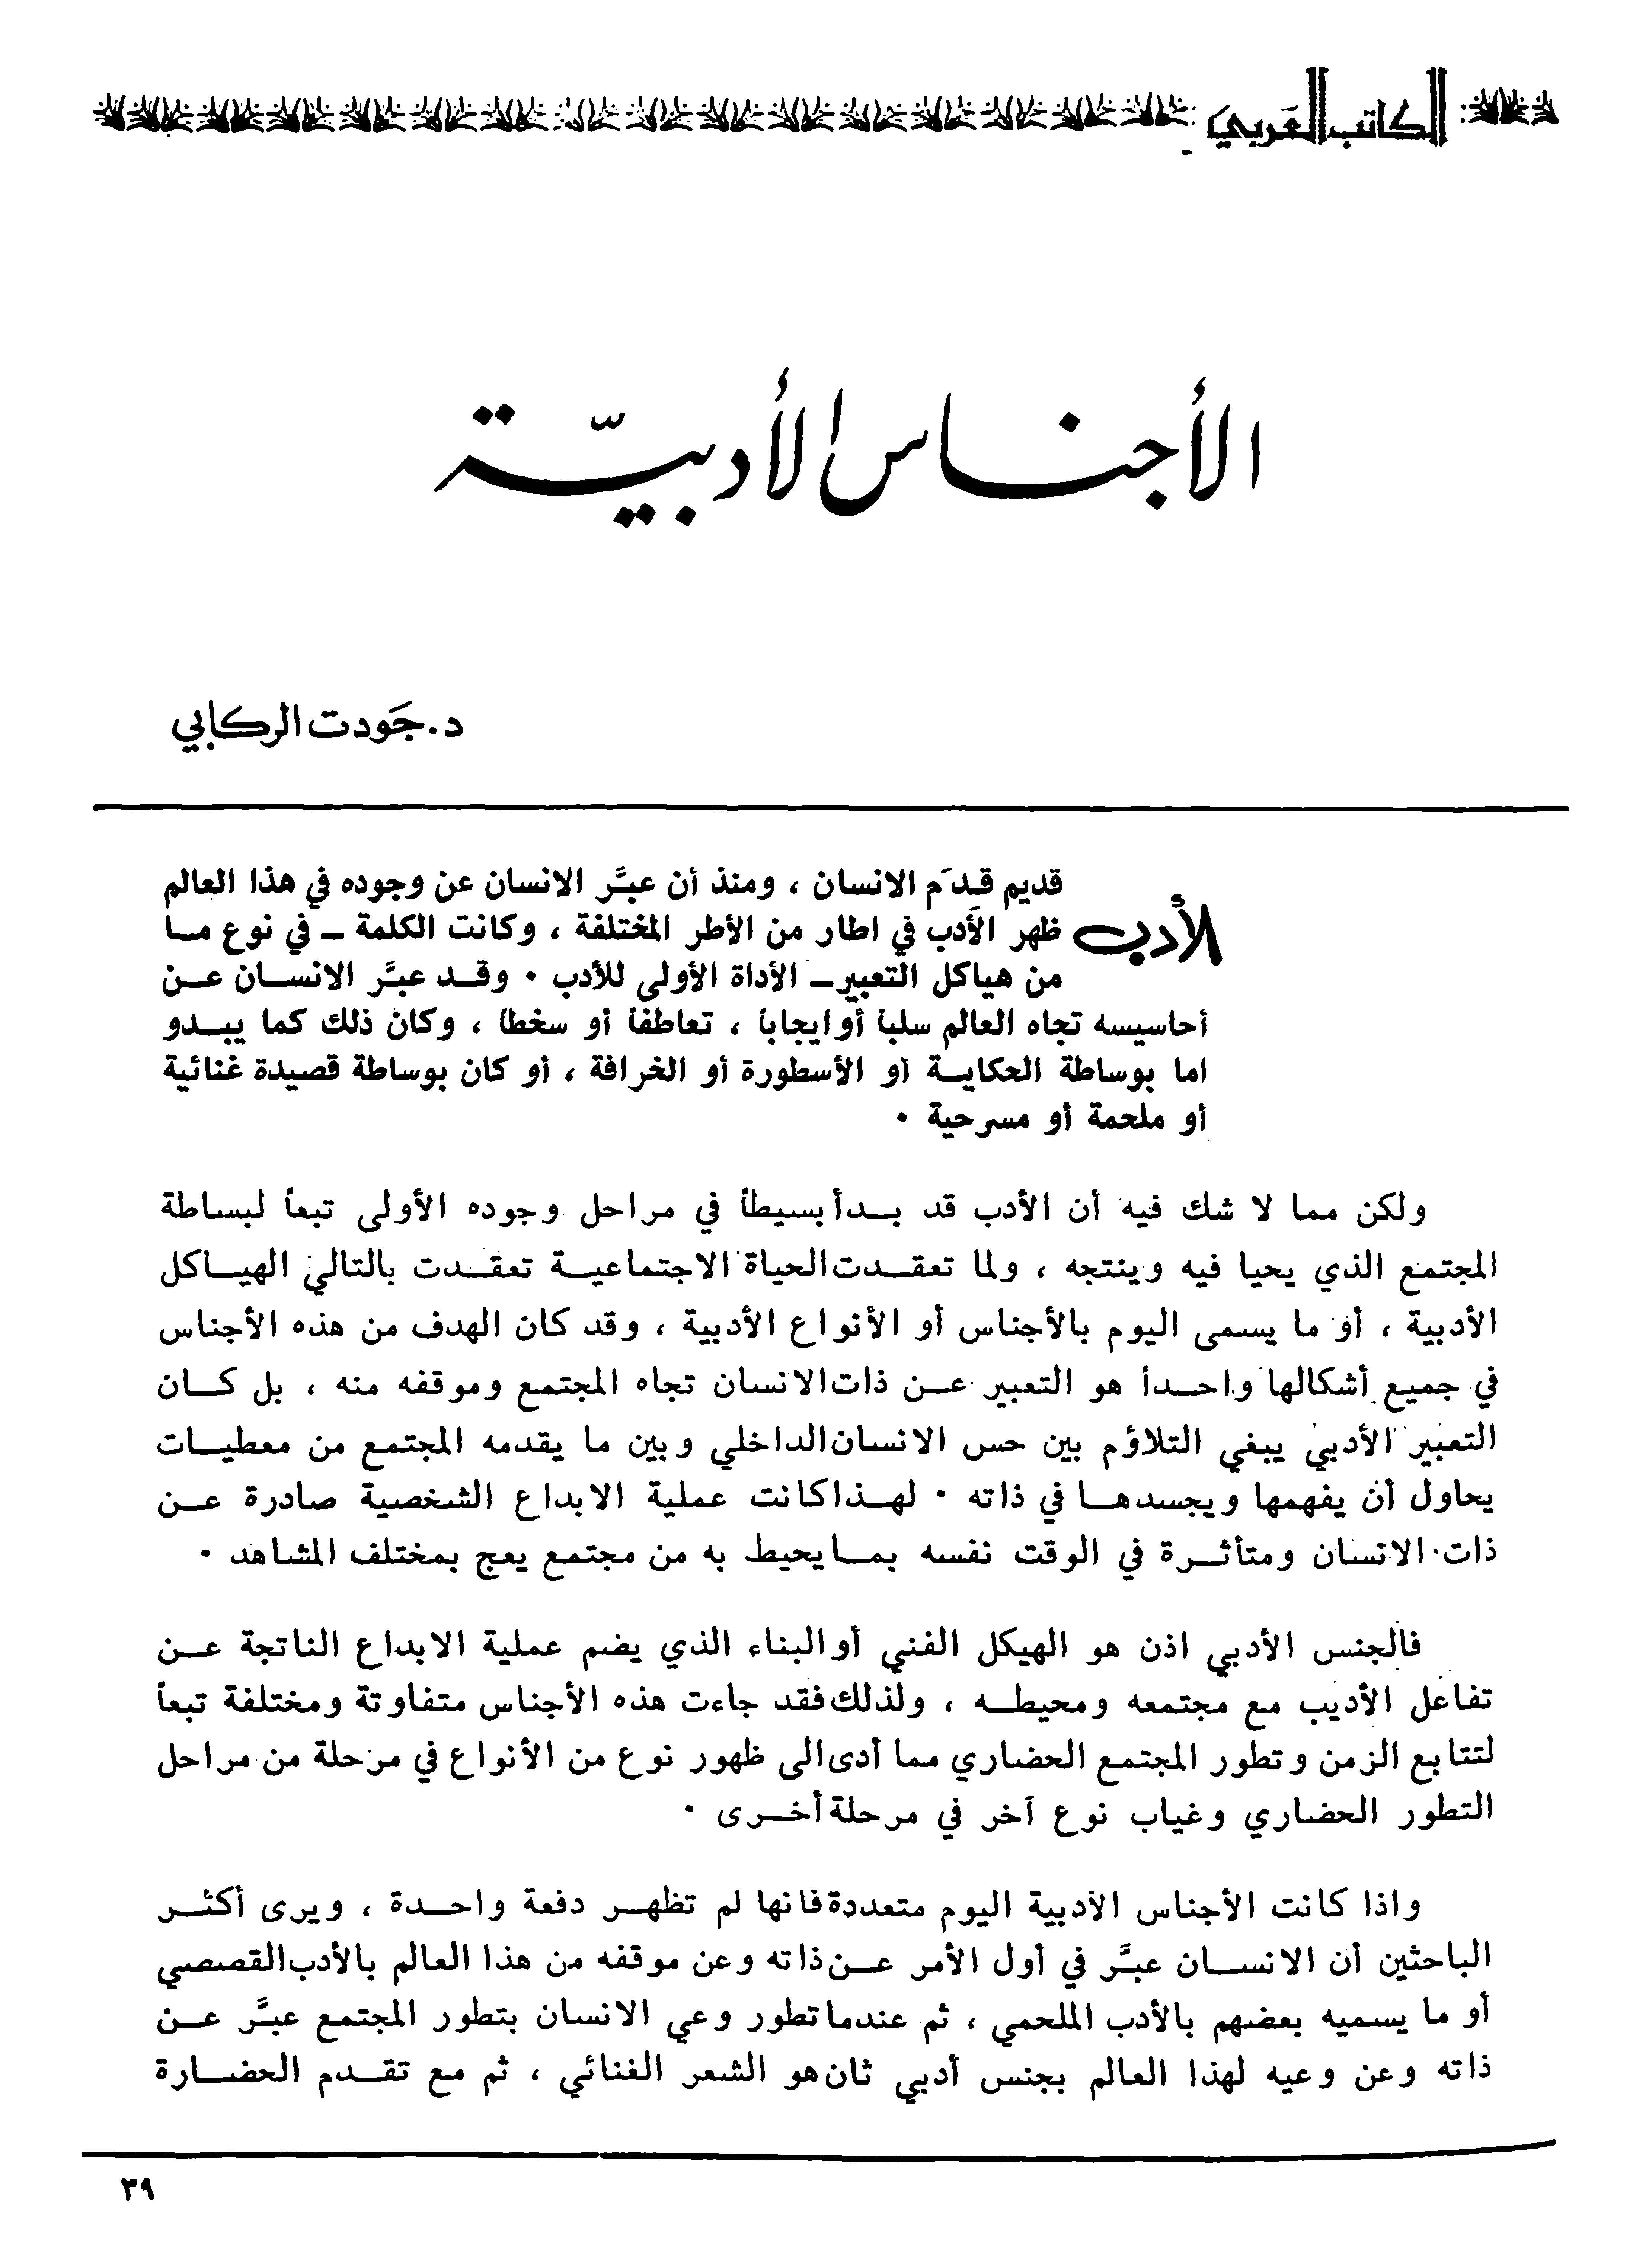 الكاتب العَربي
الأجناس الأدبيّة
د. جَودت الركابي
الأدب قديم قدَم الانسان ، ومنذ أن عبَّر الانسان عن وجوده في هذا العالم
ظهر الأدب في اطار من الأطر المختلفة ، وكانت الكلمة ـ في نوع مـا
من هياكل التعبير ـ الأداة الأولى للأدب ٠ وقـد عبَّر الانسـان عـن
أحاسيسه تجاه العالم سلباً أو ايجاباً ، تعاطفاً أو سخطاً ، وكان ذلك كما يبـدو
اما بوساطة الحكايـة أو الأسطورة أو الخرافة ، أو كان بوساطة قصيدة غنائية
أو ملحمة أو مسرحية ٠
ولكن مما لا شك فيه أن الأدب قد بـدأ بسيطاً في مراحل وجوده الأولى تبعاً لبساطة
المجتمع الذي يحيا فيه وينتجه ، ولما تعقـدت الحياة الاجتماعيـة تعقـدت بالتالي الهيـاكل
الأدبية ، أو ما يسمى اليوم بالأجناس أو الأنواع الأدبية ، وقد كان الهدف من هذه الأجناس
في جميع أشكالها واحـداً هو التعبير عـن ذات الانسان تجاه المجتمع وموقفه منه ، بل كـان
التعبير الأدبي يبغي التلاؤم بين حس الانسان الداخلي وبين ما يقدمه المجتمع من معطيـات
يحاول أن يفهمها ويجسدهـا في ذاته ٠ لهـذا كانت عملية الابداع الشخصية صادرة عـن
ذات الانسان ومتأثـرة في الوقت نفسه بمـا يحيط به من مجتمع يعج بمختلف المشاهد ٠
فالجنس الأدبي اذن هو الهيكل الفني أو البناء الذي يضم عملية الابداع الناتجة عـن
تفاعل الأديب مع مجتمعه ومحيطـه ، ولذلك فقد جاءت هذه الأجناس متفاوتة ومختلفة تبعاً
لتتابع الزمن وتطور المجتمع الحضاري مما أدى الى ظهور نوع من الأنواع في مرحلة من مراحل
التطور الحضاري وغياب نوع آخر في مرحلة أخـرى ٠
واذا كانت الأجناس الأدبية اليوم متعددة فانها لم تظهـر دفعة واحـدة ، ويرى أكثـر
الباحثين أن الانسـان عبَّر في أول الأمر عـن ذاته وعن موقفه من هذا العالم بالأدب القصصي
أو ما يسميه بعضهم بالأدب الملحمي ، ثم عندما تطور وعي الانسان بتطور المجتمع عبَّر عـن
ذاته وعن وعيه لهذا العالم بجنس أدبي ثان هو الشعر الغنائي ، ثم مع تقـدم الحضـارة
٣٩